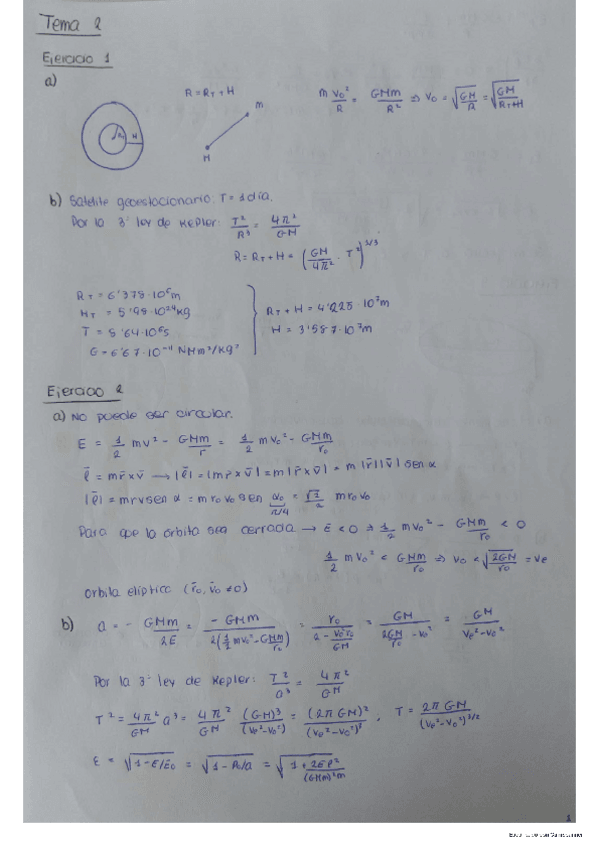 Tema 2
Ejercicio 1
a)
R = R_T + H
m v₀²/R = GMm/R² ⇒ v₀ = √(GM/R) = √(GM/(R_T+H))
R_T H
m
M
b) Satélite geoestacionario: T = 1 día.
Por la 3ª ley de Kepler: T²/R³ = 4π²/GM
R = R_T + H = (GM/4π² · T²)^(1/3)
R_T = 6'378·10⁶ m
M_T = 5'98·10²⁴ kg
T = 8'64·10⁴ s
G = 6'67·10⁻¹¹ N·m²/kg²
R_T + H = 4'225·10⁷ m
H = 3'587·10⁷ m
Ejercicio 2
a) No puede ser circular.
E = 1/2 mv² - GMm/r = 1/2 mv₀² - GMm/r₀
l̄ = m r̄ × v̄ → |l̄| = |m r̄ × v̄| = m |r̄ × v̄| = m |r̄||v̄| sen α
|l̄| = m r v sen α = m r₀ v₀ sen α₀ = √2/2 m r₀ v₀
π/4
Para que la órbita sea cerrada → E < 0 ⇒ 1/2 mv₀² - GMm/r₀ < 0
1/2 mv₀² < GMm/r₀ ⇒ v₀ < √(2GM/r₀) = v_e
Orbita elíptica (r̄₀, v̄₀ ≠ 0)
b) a = - GMm/2E = - GMm/(2(1/2 mv₀² - GMm/r₀)) = r₀/(2 - v₀²r₀/GM) = GM/(2GM/r₀ - v₀²) = GM/(v_e² - v₀²)
Por la 3ª ley de Kepler: T²/a³ = 4π²/GM
T² = 4π²/GM a³ = 4π²/GM (GM)³/(v_e² - v₀²)³ = (2π GM)²/(v_e² - v₀²)³ , T = 2π GM/(v_e² - v₀²)^(3/2)
ε = √(1 - E/E₀) = √(1 - R₀/a) = √(1 + 2El²/((GMm)² m))
1